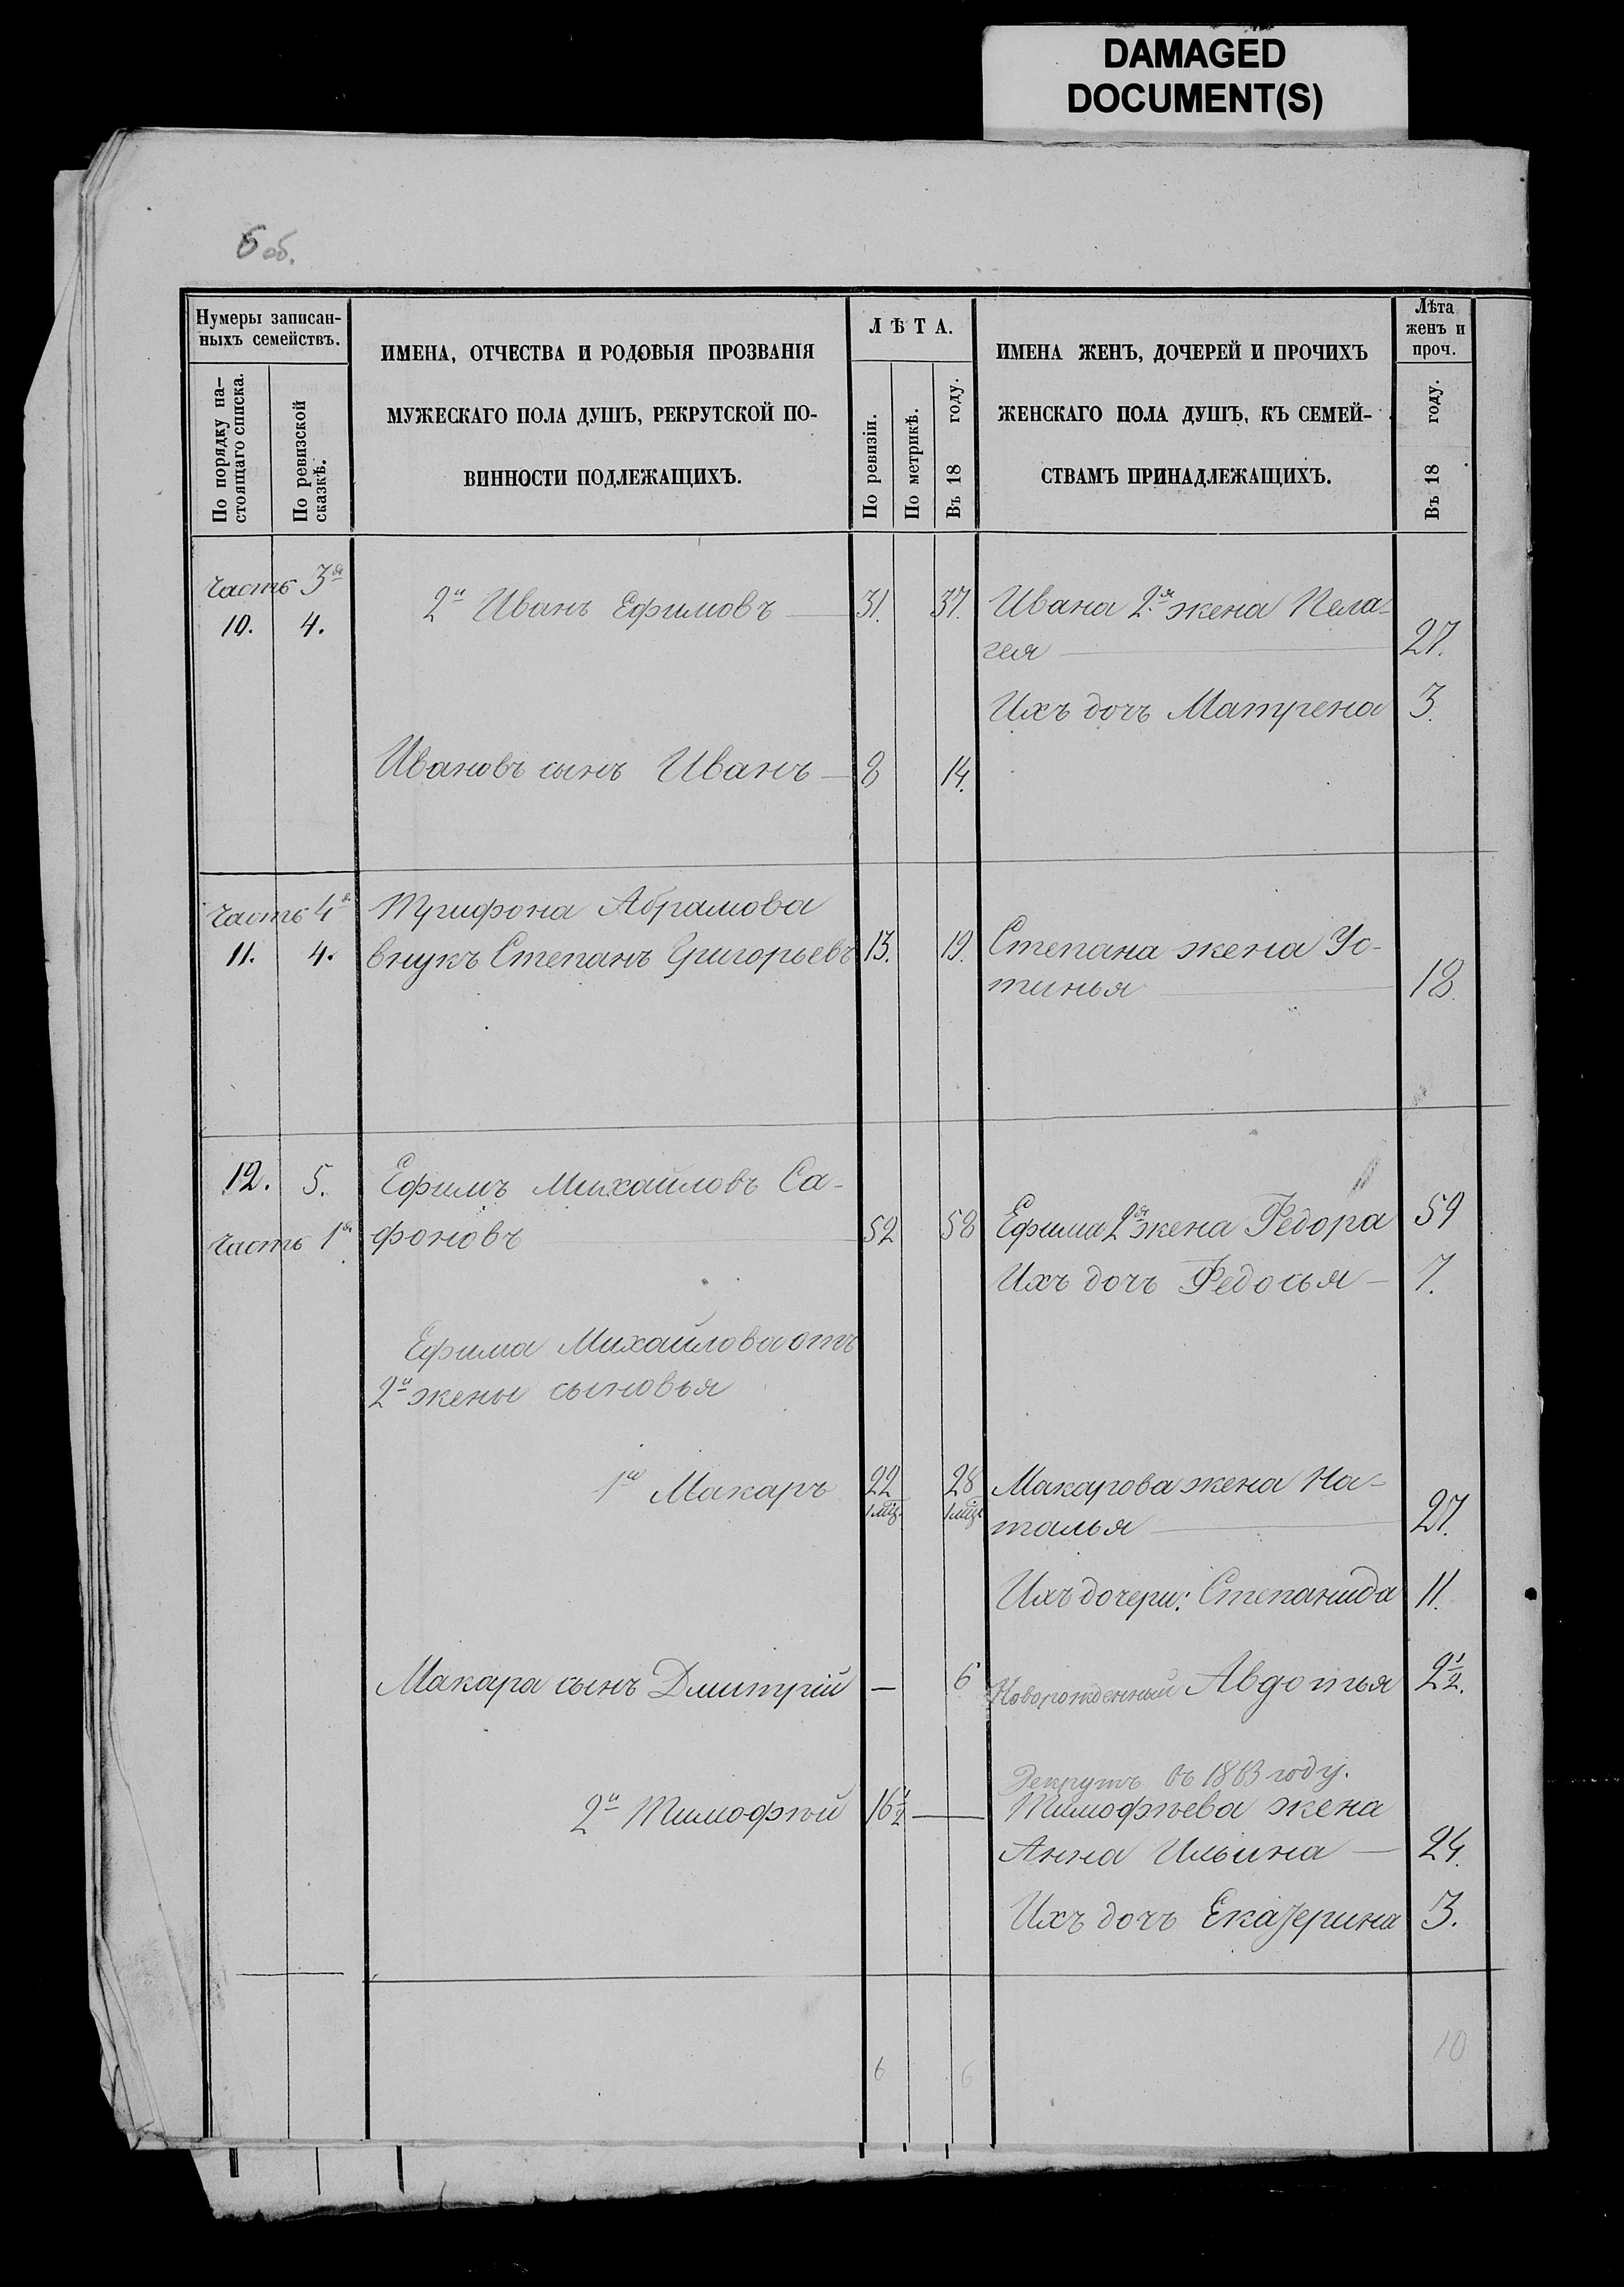 DAMAGED
DOCUMENT(S)
5 об.
Нумеры записан-
ныхъ семействъ.
По порядку на-
стоящаго списка.
По ревизской
сказкѣ.
ИМЕНА, ОТЧЕСТВА И РОДОВЫЯ ПРОЗВАНІЯ
МУЖЕСКАГО ПОЛА ДУШЪ, РЕКРУТСКОЙ ПО-
ВИННОСТИ ПОДЛЕЖАЩИХЪ.
ЛѢТА.
По ревизіи.
По метрикѣ.
Въ 18 году.
ИМЕНА ЖЕНЪ, ДОЧЕРЕЙ И ПРОЧИХЪ
ЖЕНСКАГО ПОЛА ДУШЪ, КЪ СЕМЕЙ-
СТВАМЪ ПРИНАДЛЕЖАЩИХЪ.
Лѣта
женъ и
проч.
Въ 18 году.
Часть 3я
10. 4.
2й Иванъ Ефимовъ 31. 37. Ивана 2я жена Пела-
гея 27.
Ихъ дочь Матрена 3.
Ивановъ сынъ Иванъ 8 14.
Часть 4я Трифона Абрамова
11. 4. внукъ Степанъ Григорьевъ 13. 19. Степана жена Ус-
тинья 18.
12. 5. Ефимъ Михайловъ Са-
Часть 1я фоновъ 52 58 Ефима 2я жена Федора 59
Ихъ дочь Федосья 7.
Ефима Михайлова отъ
2й жены сыновья
1й Макаръ 22 28 Макарова жена На-
1 мц. 1 мц. талья 27.
Ихъ дочери: Степанида 11.
Макара сынъ Дмитрій — 6 Новорожденный Авдотья 2½.
Рекрутъ въ 1863 году.
2й Тимофѣй 16½ — Тимофѣева жена
Анна Ильина 24.
Ихъ дочь Екатерина 3.
6 6 10